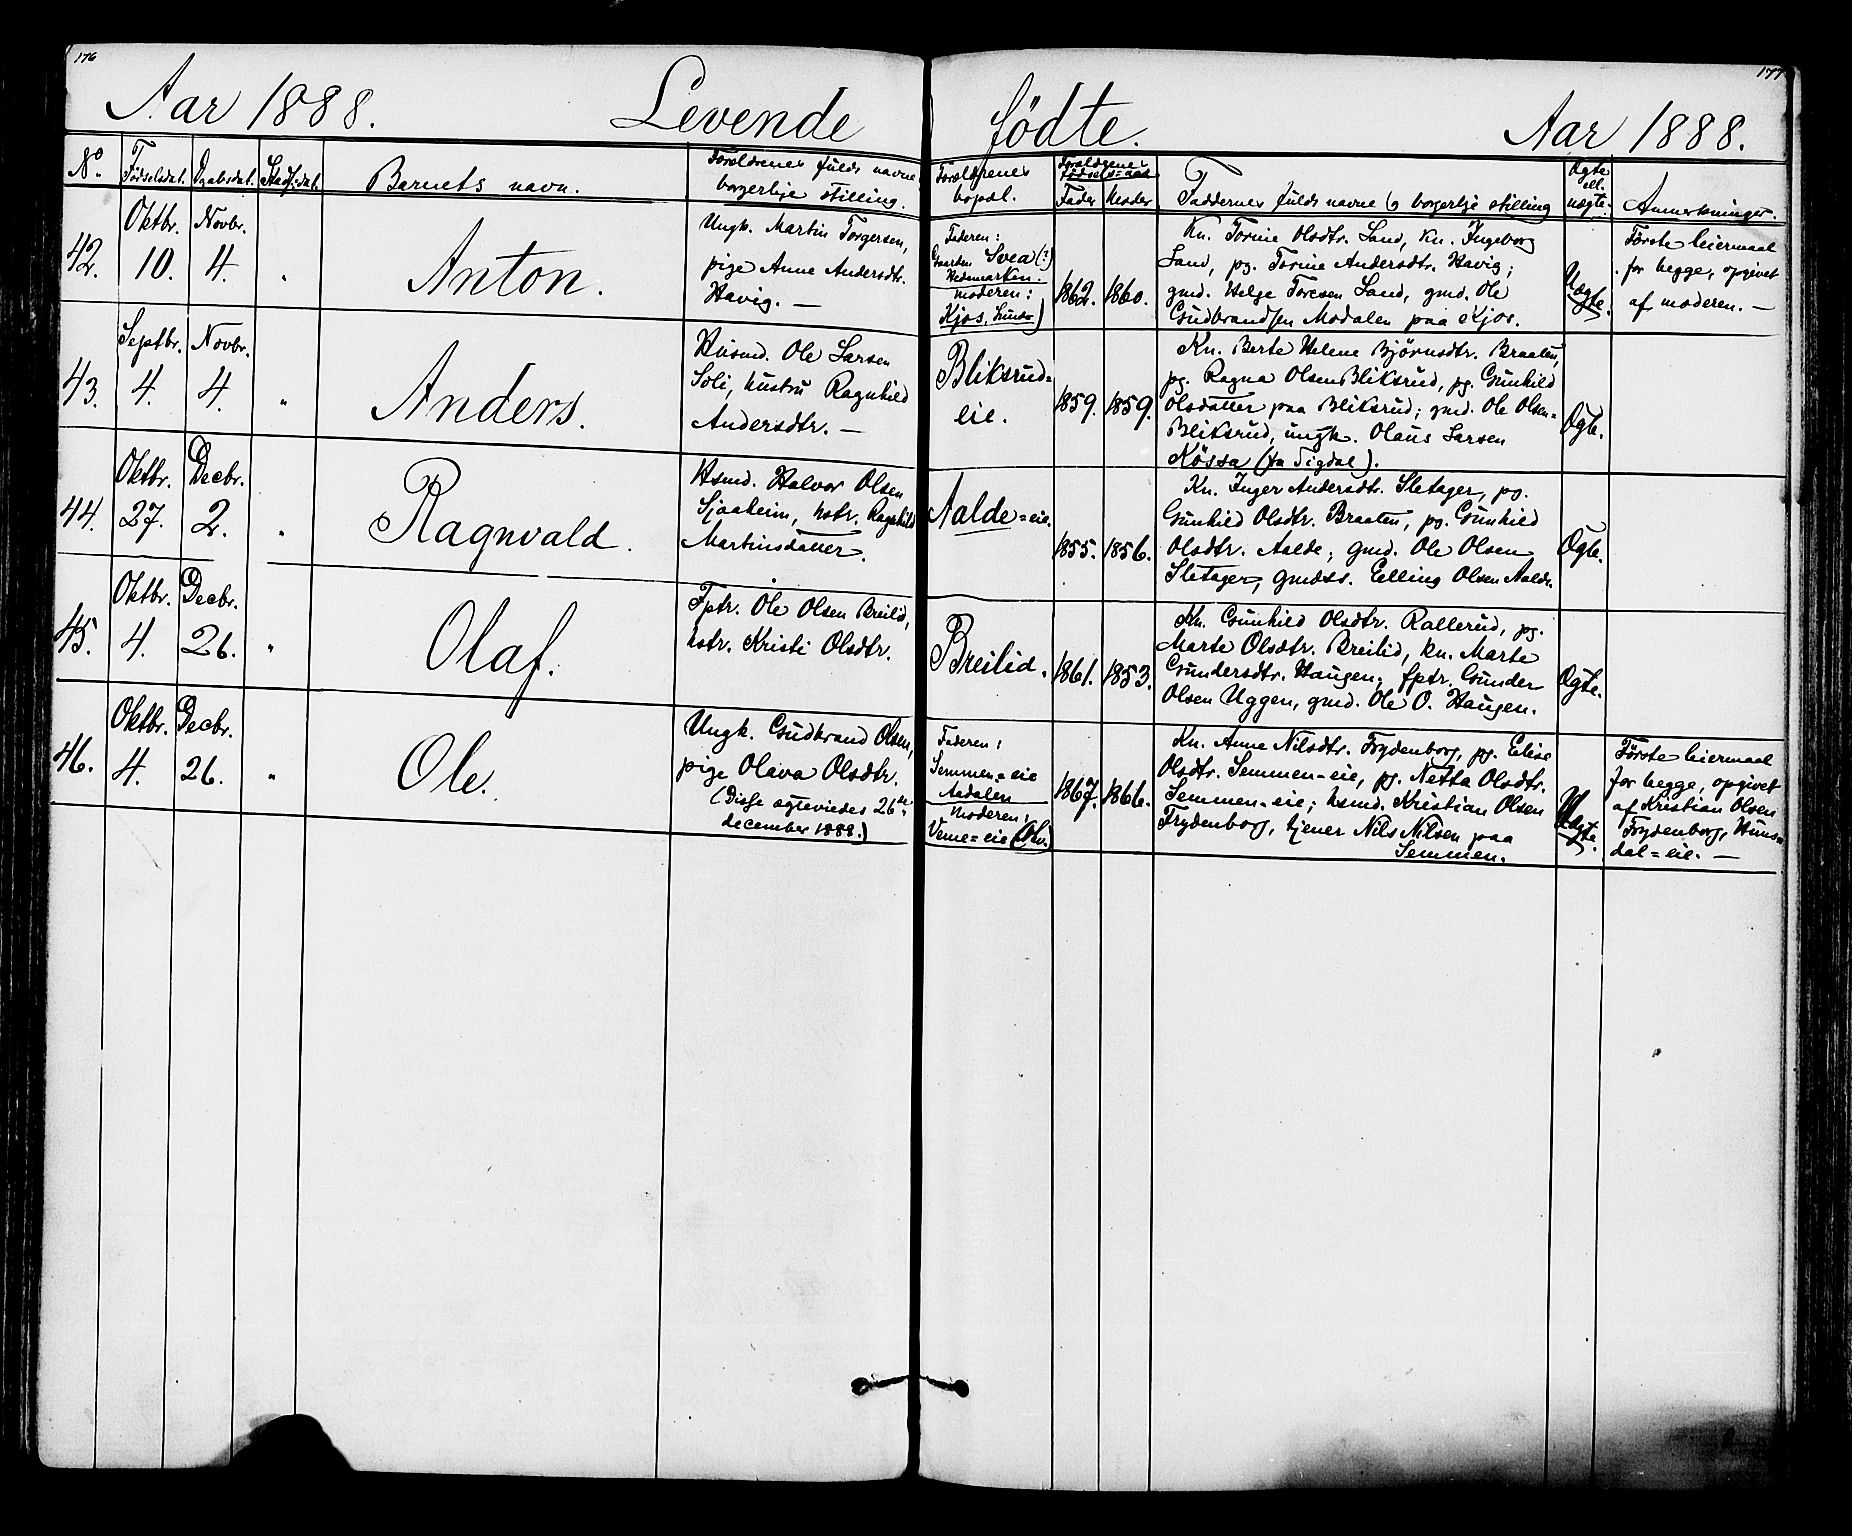 176
177
Aar 1888. Levende fødte. Aar 1888.
No. Fødselsdat. Daabsdat. Stadf.dat. Barnets navn. Forældrenes fulde navne, borgerlige stilling.
Forældrenes bopæl. Forældrenes Fødsels=aar Fader Moder Faddernes fulde navne og borgerlige stilling Ægte ell. uægte. Anmerkninger.
42.
Oktbr. 10.
Novbr. 4.
"
Anton.
Ungk. Martin Torgersen,
pige Anne Andersdtr.
Havig. —
Faderen:
Gaarden Svea (?)
Hedemarken.
Moderen:
Kjos,
1862.
1860.
Kn. Torine Olsdtr. Sand, kn. Ingeborg
Sand, pg. Torine Andersdtr. Havig;
gmd. Helge Toresen Sand, gmd. Ole
Gudbrandsen Modalen paa Kjos.
Uægte.
Første leiermaal
for begge, opgivet
af moderen. —
43.
Septbr. 4.
Novbr. 4.
"
Anders.
Husmd. Ole Larsen
Soli, hustru Ragnhild
Andersdtr. —
Bliksrud=
eie.
1859.
1859.
Kn. Berte Helene Bjørnsdtr. Braaten,
pg. Ragna Olsen Bliksrud, pg. Gunhild
Olsdatter paa Bliksrud; gmd. Ole Olsen=
Bliksrud, ungk. Olaus Larsen
Køssa (fra Sigdal).
Ægte.
44.
Oktbr. 27.
Decbr. 2.
"
Ragnvald.
Hsmd. Halvor Olsen
Sjaaheim, hstr. Ragnhild
Martinsdatter.
Aalde=eie.
1855.
1856.
Kn. Inger Andersdtr. Sletager, pg.
Gunhild Olsdtr. Braaten, pg. Gunhild
Olsdtr. Aalde; gmd. Ole Olsen
Sletager, gmdss. Elling Olsen Aalde.
Ægte.
45.
Oktbr. 4.
Decbr. 26.
"
Olaf.
Fptr. Ole Olsen Breilid,
hstr. Kristi Olsdtr.
Breilid.
1861.
1853.
Kn. Gunhild Olsdtr. Rallerud, pg.
Marte Olsdtr. Breilid, kn. Marte
Gundersdtr. Haugen; fptr. Gunder
Olsen Uggen, gmd. Ole O. Haugen.
Ægte.
46.
Oktbr. 4.
Decbr. 26.
"
Ole.
Ungk. Gudbrand Olsen,
pige Olava Olsdtr.
(Disse ægteviedes 26de
december 1888.)
Faderen:
Semmen=eie
Aadalen
Moderen:
Veme=eie
1867.
1866.
Kn. Anne Nilsdtr. Frydenborg, pg. Elise
Olsdtr. Semmen-eie, pg. Netta Olsdtr.
Semmen-eie; hsmd. Kristian Olsen
Frydenborg, tjener Nils Nilsen paa
Semmen.
Uægte.
Første leiermaal
for begge, opgivet
af Kristian Olsen
Frydenborg, Huns=
dal=eie. —